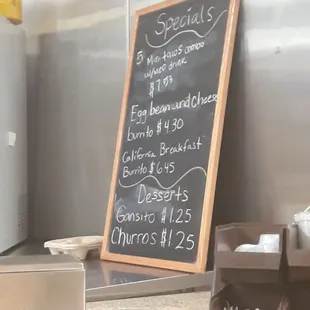 Specials
5 Mini tacos combo
w/med drink
$7.53
Egg bean and Cheese
burrito $4.30
California Breakfast
Burrito $6.45
Desserts
Gansito $1.25
Churros $1.25